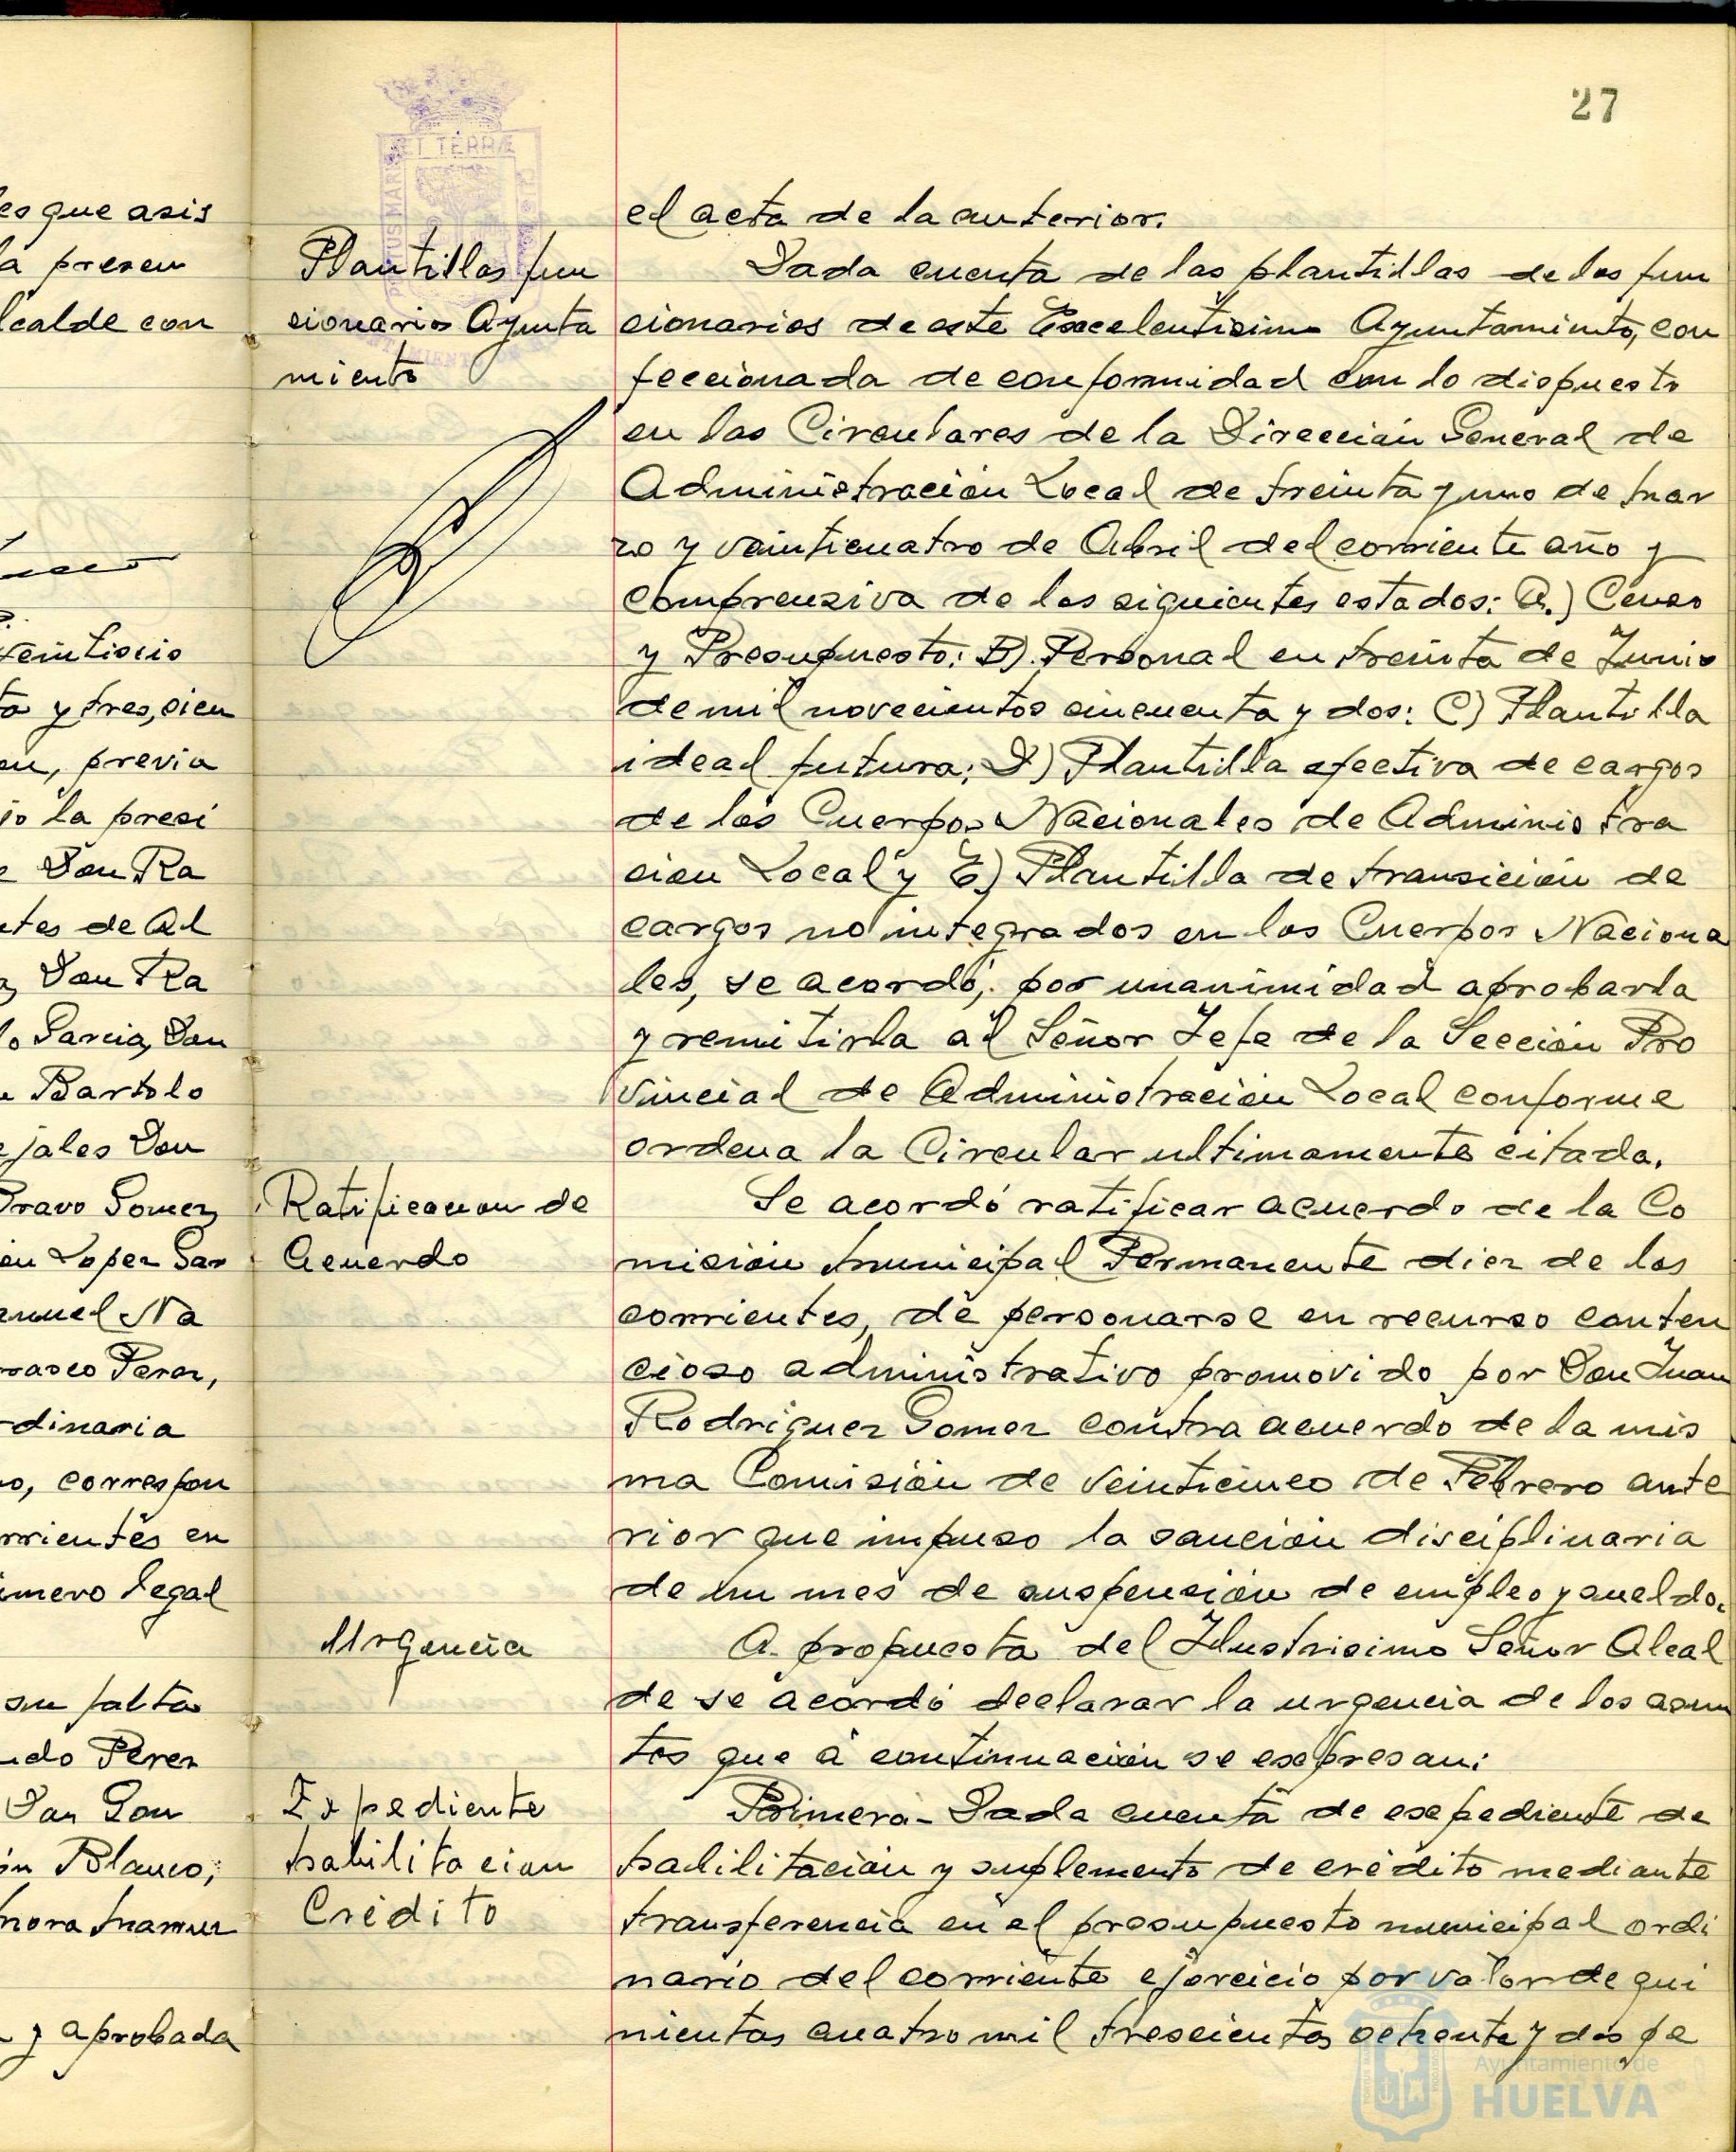 27
es que asis
a presen
lcalde con
veintiseis
ta y tres, sien
en, previa
jo la presi
e Don Ra
ntes de Al
z, Don Ra
lo Garcia, Don
e Bartolo
ejales Don
Bravo Gomez
en Lopez Gar
anuel Na
rrasco Perez,
rdinaria
o, correspon
rrientes en
úmero legal
su falta
ndo Perez
Don Gon
ón Blanco,
mora Marquez
a y aprobada
ET TERRÆ
PORTUS MARIS
Plantillas fun
cionarios Ayunta
miento
Ratificacion de
Acuerdo
Urgencia
Expediente
habilitacion
Crédito
el acta de la anterior.
Dada cuenta de las plantillas de los fun
cionarios de este Excelentísimo Ayuntamiento, con
feccionada de conformidad con lo dispuesto
en las Circulares de la Dirección General de
Administración Local de treinta y uno de Mar
zo y veinticuatro de Abril del corriente año y
comprensiva de los siguientes estados: A.) Censo
y Presupuesto: B). Personal en treinta de Junio
de mil novecientos cincuenta y dos: C) Plantilla
ideal futura; D) Plantilla efectiva de cargos
de los Cuerpos Nacionales de Administra
cion Local y E) Plantilla de transición de
cargos no integrados en los Cuerpos Naciona
les, se acordó, por unanimidad aprobarla
y remitirla al Señor Jefe de la Sección Pro
vincial de Administración Local conforme
ordena la Circular ultimamente citada.
Se acordó ratificar acuerdo de la Co
misión Municipal Permanente diez de los
corrientes, de personarse en recurso conten
cioso administrativo promovido por Don Juan
Rodriguez Gomez contra acuerdo de la mis
ma Comisión de veinticinco de Febrero ante
rior que impuso la sanción disciplinaria
de un mes de suspensión de empleo y sueldo.
A propuesta del Ilustrisimo Señor Alcal
de se acordó declarar la urgencia de los asun
tos que á continuación se expresan:
Primera- Dada cuenta de expediente de
habilitación y suplemento de crédito mediante
transferencia en el presupuesto municipal ordi
nario del corriente ejercicio por valor de qui
nientas cuatro mil trescientas ochenta y dos pe
Ayuntamiento de
HUELVA